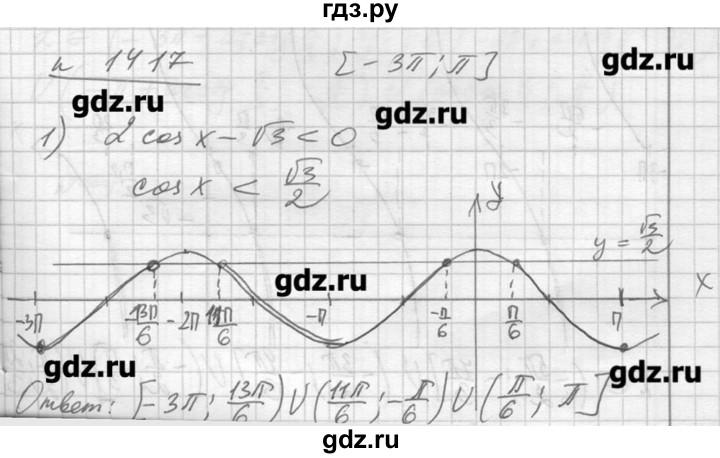 гдз.ру
н 1417 [-3π; π] gdz.ru
gdz.ru gdz.ru
1) 2 cos x - √3 < 0
cos x < √3/2
y
y = √3/2
gdz.ru x
-3π -13π/6 -2π 11π/6 -π -π/6 π/6 π
gdz.ru gdz.ru
Ответ: [-3π; 13π/6) ∪ (11π/6; -π/6) ∪ (π/6; π]
gdz.ru